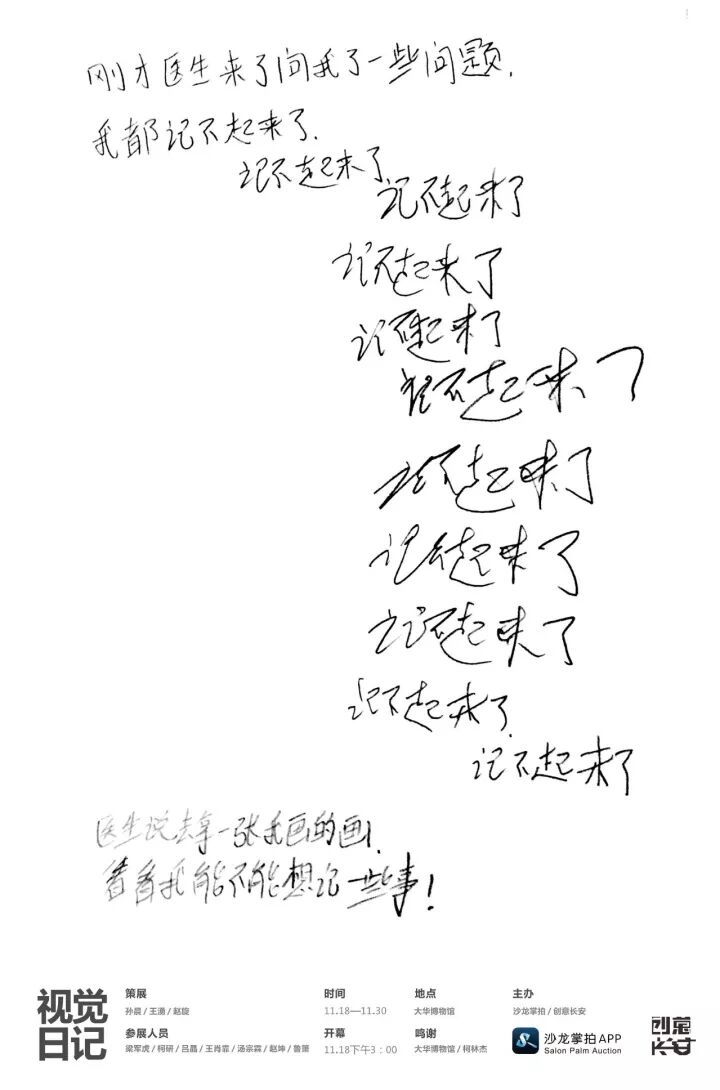 刚才医生来了问我了一些问题.
我都记不起来了.
记不起来了
记不起来了
记不起来了
记不起来了
记不起来了
记不起来了
记不起来了
记不起来了
记不起来了
记不起来了
医生说去拿一张我画的画.
看看我能不能想记一些事!
视觉日记
策展
孙晨/王湧/赵旋
参展人员
梁军虎/柯研/吕晶/王肖霏/汤宗霖/赵坤/鲁箫
时间
11.18—11.30
开幕
11.18下午3:00
地点
大华博物馆
鸣谢
大华博物馆/柯林杰
主办
沙龙掌拍/创意长安
沙龙掌拍APP
Salon Palm Auction
创意长安